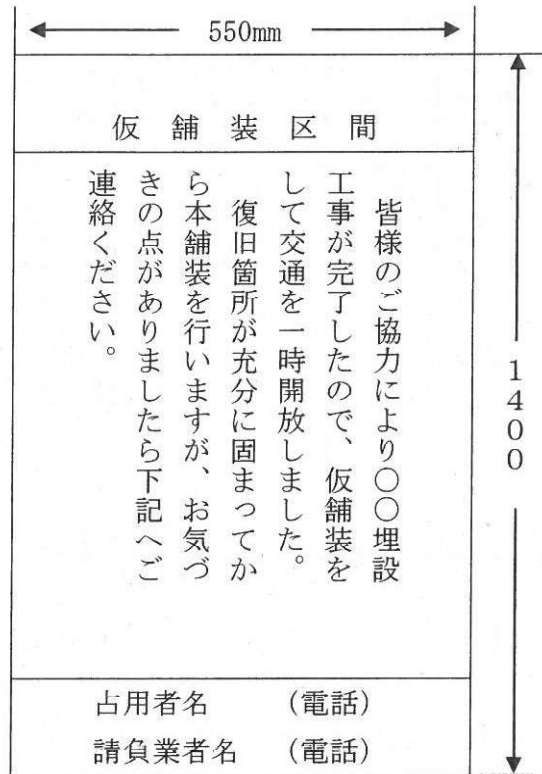 550mm
仮舗装区間
皆様のご協力により〇〇埋設
工事が完了したので、仮舗装を
して交通を一時開放しました。
復旧箇所が充分に固まってか
ら本舗装を行いますが、お気づ
きの点がありましたら下記へご
連絡ください。
1400
占用者名 （電話）
請負業者名 （電話）